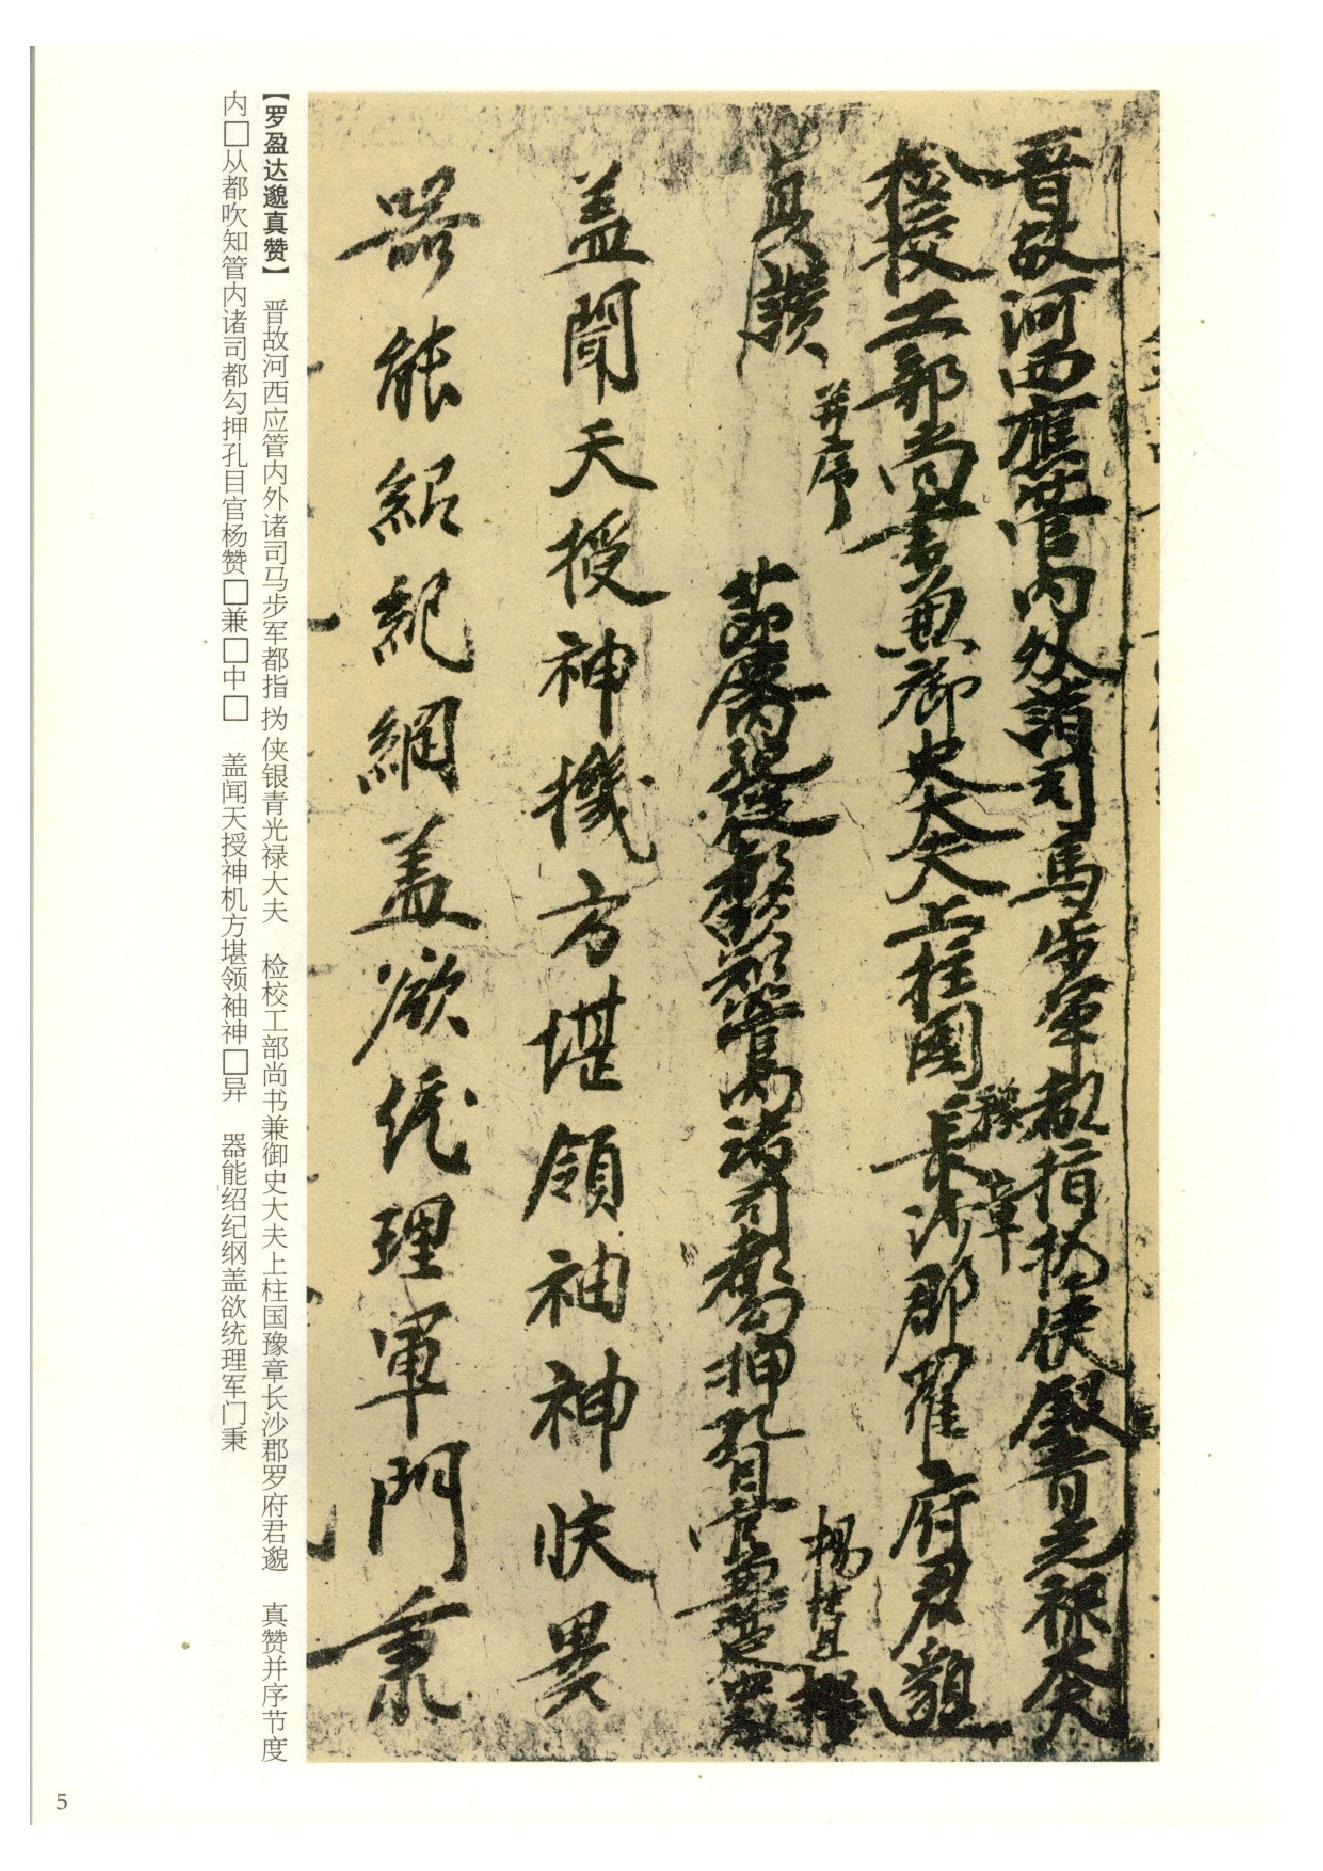 晋故河西應管内外諸司馬步軍都指撝使銀青光禄大夫
檢校工部尚書兼御史大夫上柱國
豫章
長沙郡羅府君邈
真讚
并序
節度内親從都頭知管内諸司都勾押孔目官兼御史中丞
楊 撰
盖聞天授神機方堪領袖神 異
器能紹紀綱盖欲統理軍門秉
【罗盈达邈真赞】 晋故河西应管内外诸司马步军都指㧑侠银青光禄大夫 检校工部尚书兼御史大夫上柱国豫章长沙郡罗府君邈 真赞并序节度
内□从都吹知管内诸司都勾押孔目官杨赞□兼□中□ 盖闻天授神机方堪领袖神□异 器能绍纪纲盖欲统理军门秉
5